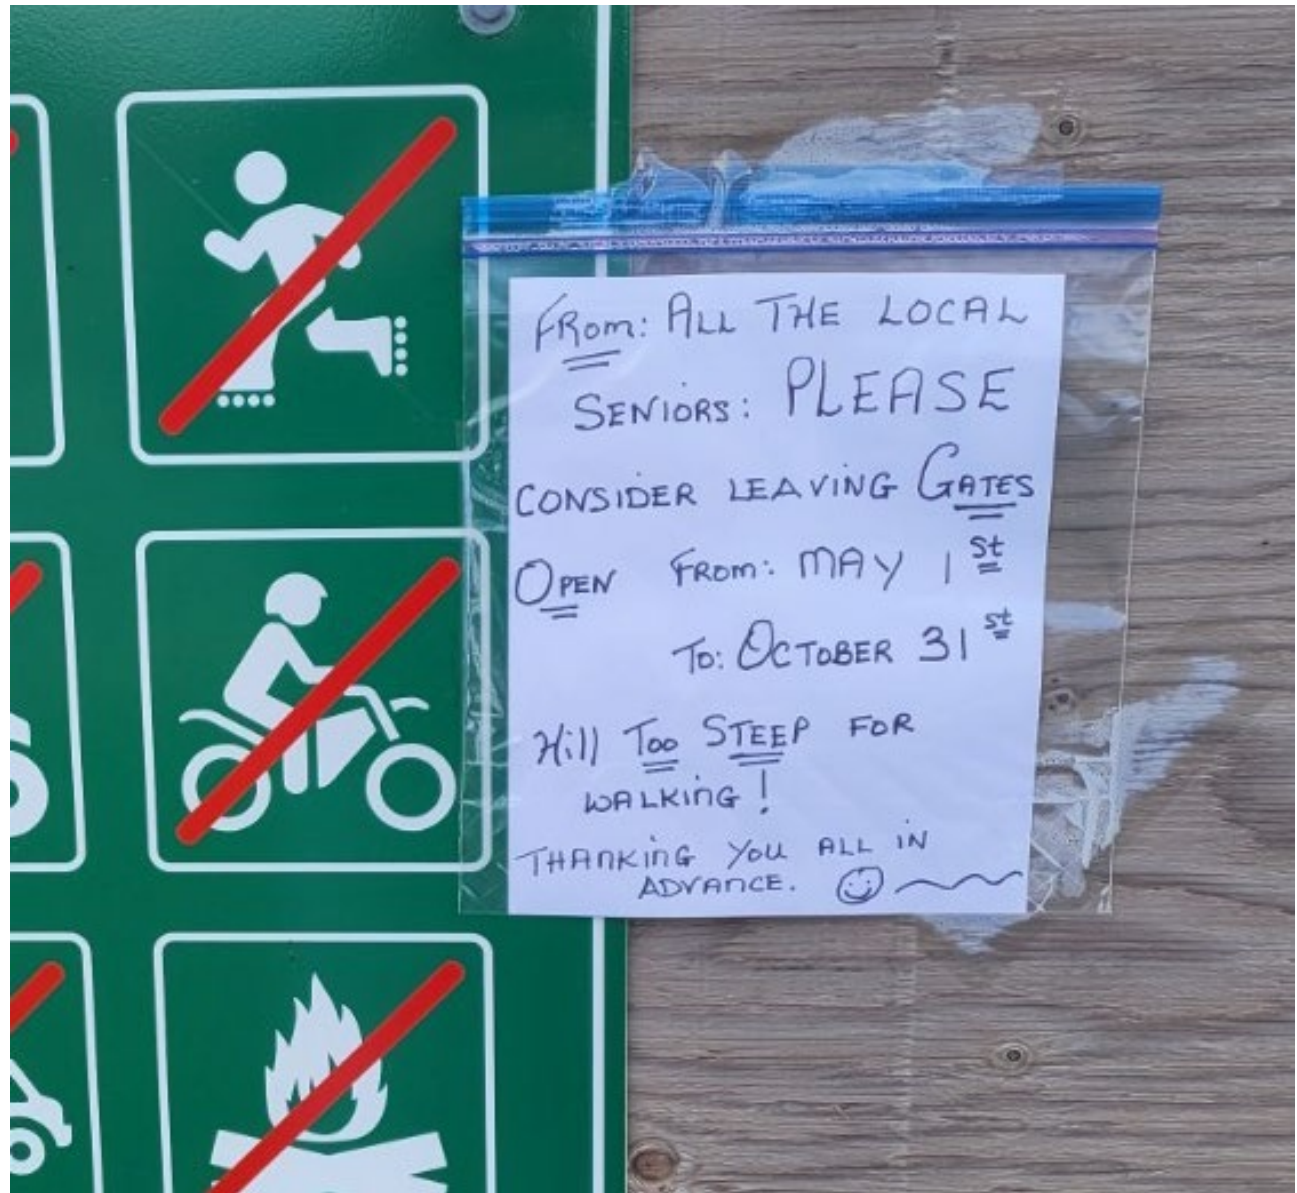 FRom: ALL THE LOCAL
SENiORS: PLEASE
CONSiDER LEAViNG GATES
OPEN FROM: MAY 1st
To: OCTOBER 31st
Hill Too STEEP FOR
WALKiNG!
THANKiNG YOU ALL iN
ADVANCE.